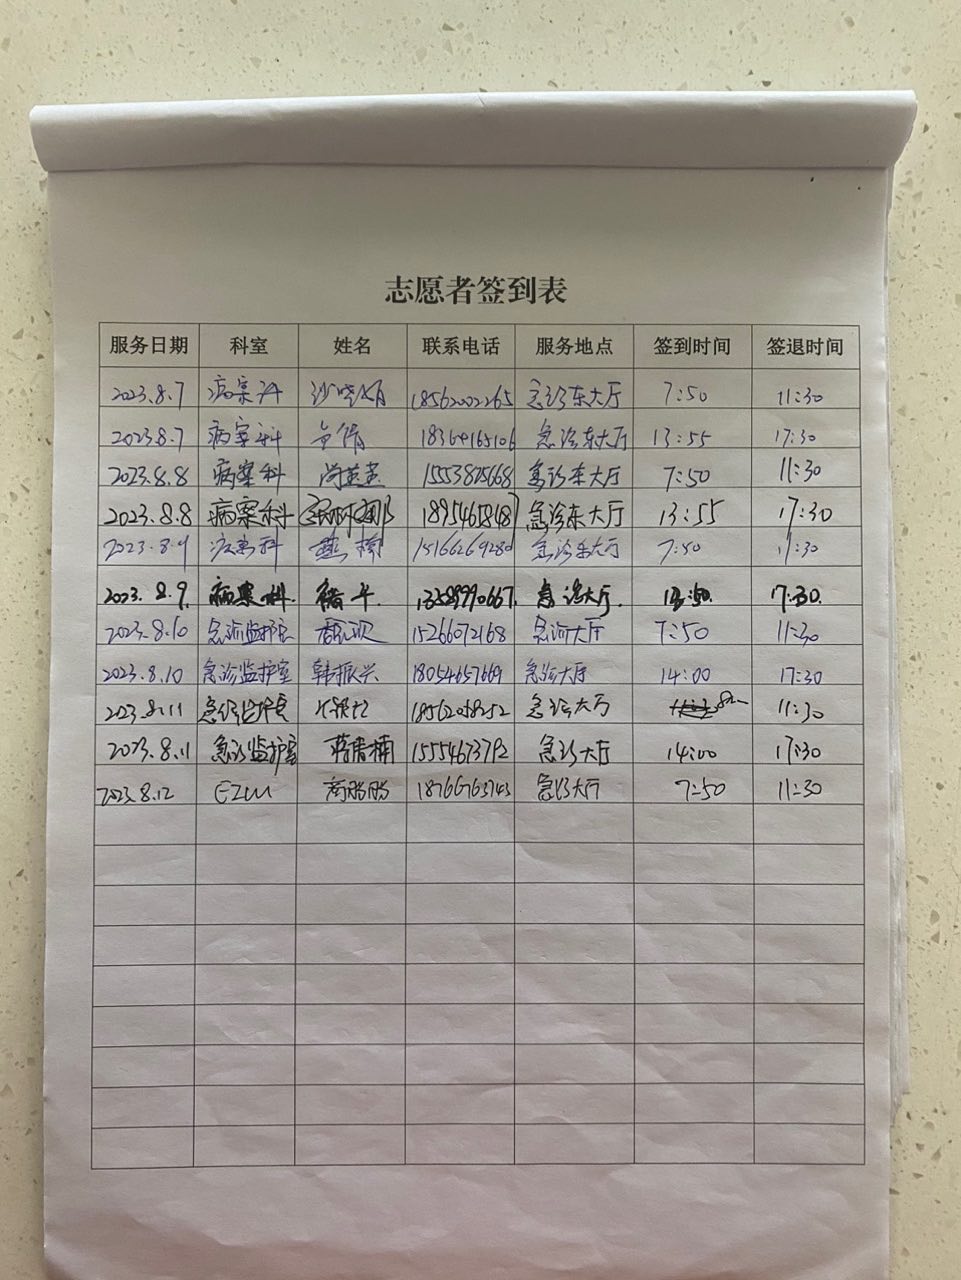 志愿者签到表
服务日期 科室 姓名 联系电话 服务地点 签到时间 签退时间
2023.8.7 病案科 18562002265 急诊东大厅 7:50 11:30
2023.8.7 病案科 18364165106 急诊东大厅 13:55 17:30
2023.8.8 病案科 尚英英 15553825668 急诊东大厅 7:50 11:30
2023.8.8 病案科 急诊东大厅 13:55 17:30
2023.8.9 病案科 燕楠 15166269280 急诊东大厅 7:50 11:30
2023.8.9. 病案科. 13589990667. 急诊大厅. 13:50. 17:30.
2023.8.10 急诊监护室 15266072168 急诊大厅 7:50 11:30
2023.8.10 急诊监护室 韩振兴 18054657669 急诊大厅 14:00 17:30
2023.8.11 急诊监护室 急诊大厅 11:30
2023.8.11 急诊监护室 蒋青楠 15554673792 急诊大厅 14:00 17:30
2023.8.12 EICU 商盼盼 18766763743 急诊大厅 7:50 11:30